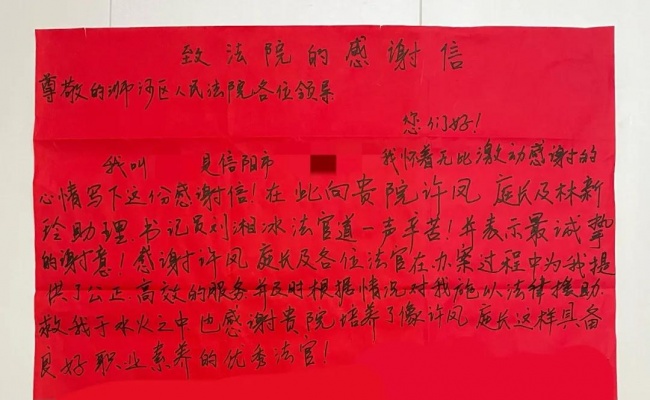 致法院的感谢信
尊敬的浉河区人民法院各位领导
您们好!
我叫 是信阳市 我怀着无比激动感谢的
心情写下这份感谢信!在此向贵院许凤 庭长及林新
玲助理 书记员刘湘冰法官道一声辛苦!并表示最诚挚
的谢意!感谢许凤 庭长及各位法官在办案过程中为我提
供了公正 高效的服务并及时根据情况对我施以法律援助
救我于水火之中也感谢贵院培养了像许凤 庭长这样具备
良好职业素养的优秀法官!